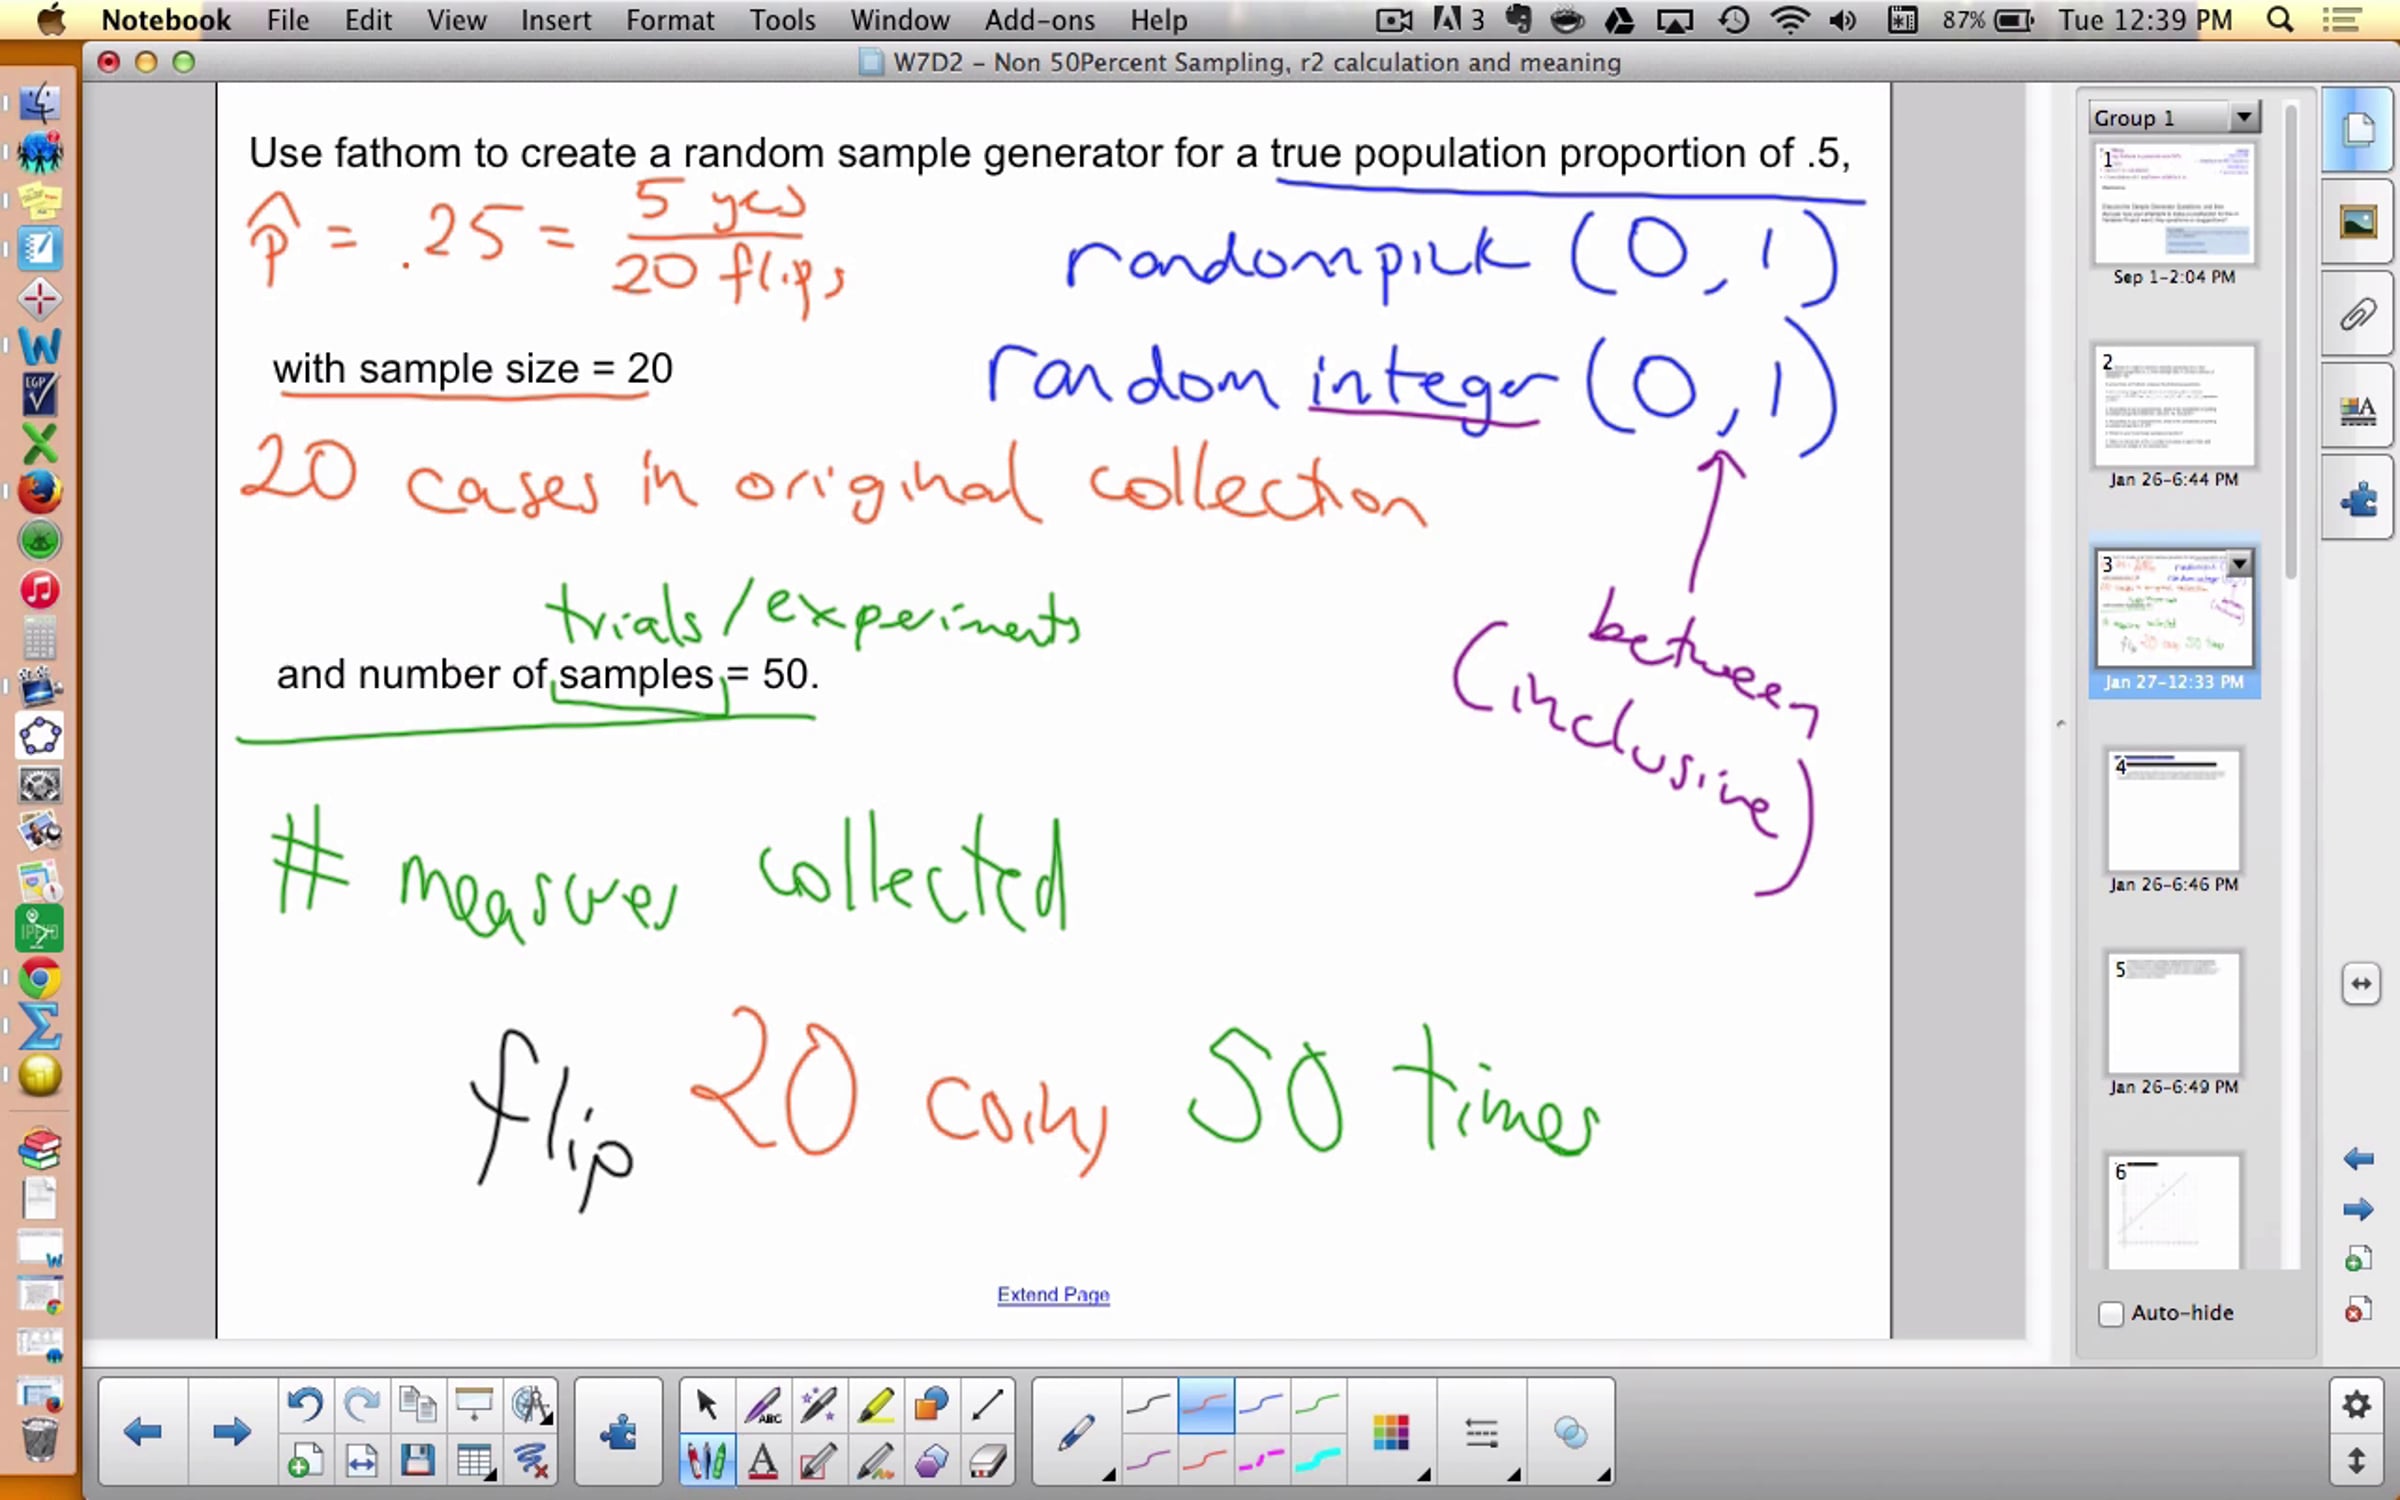 Notebook File Edit View Insert Format Tools Window Add-ons Help 3 87% Tue 12:39 PM
W7D2 – Non 50Percent Sampling, r2 calculation and meaning
Use fathom to create a random sample generator for a true population proportion of .5,
p̂ = .25 = 5 yes / 20 flips
randompick (0, 1)
with sample size = 20
random integer (0, 1)
20 cases in original collection
between
(inclusive)
trials/experiments
and number of samples = 50.
# measures collected
flip 20 coins 50 times
Extend Page
Group 1
1
Sep 1-2:04 PM
2
Jan 26-6:44 PM
3
Jan 27-12:33 PM
4
Jan 26-6:46 PM
5
Jan 26-6:49 PM
6
Auto-hide